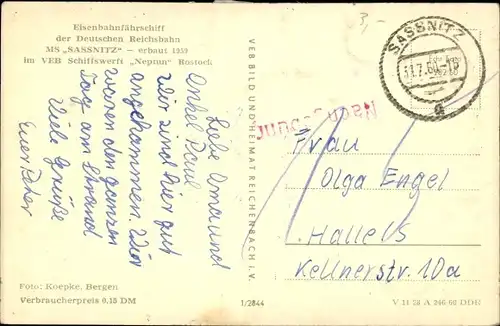 Eisenbahnfährschiff
der Deutschen Reichsbahn
MS „SASSNITZ" — erbaut 1959
im VEB Schiffswerft „Neptun" Rostock
Liebe Oma und
Onkel Paul
Wir sind hier gut
angekommen. Wir
waren den ganzen
Tag am Strand
Viele Grüße
Euer Peter
Foto: Koepke, Bergen
Verbraucherpreis 0,15 DM
VEB BILD UND HEIMAT REICHENBACH I. V.
1/2844
3,-
SASSNITZ
31.7.60-18
a
Nachgebühr
Frau
Olga Engel
Halle/S
Kellnerstr. 10a
V 11 28 A 246/60 DDR